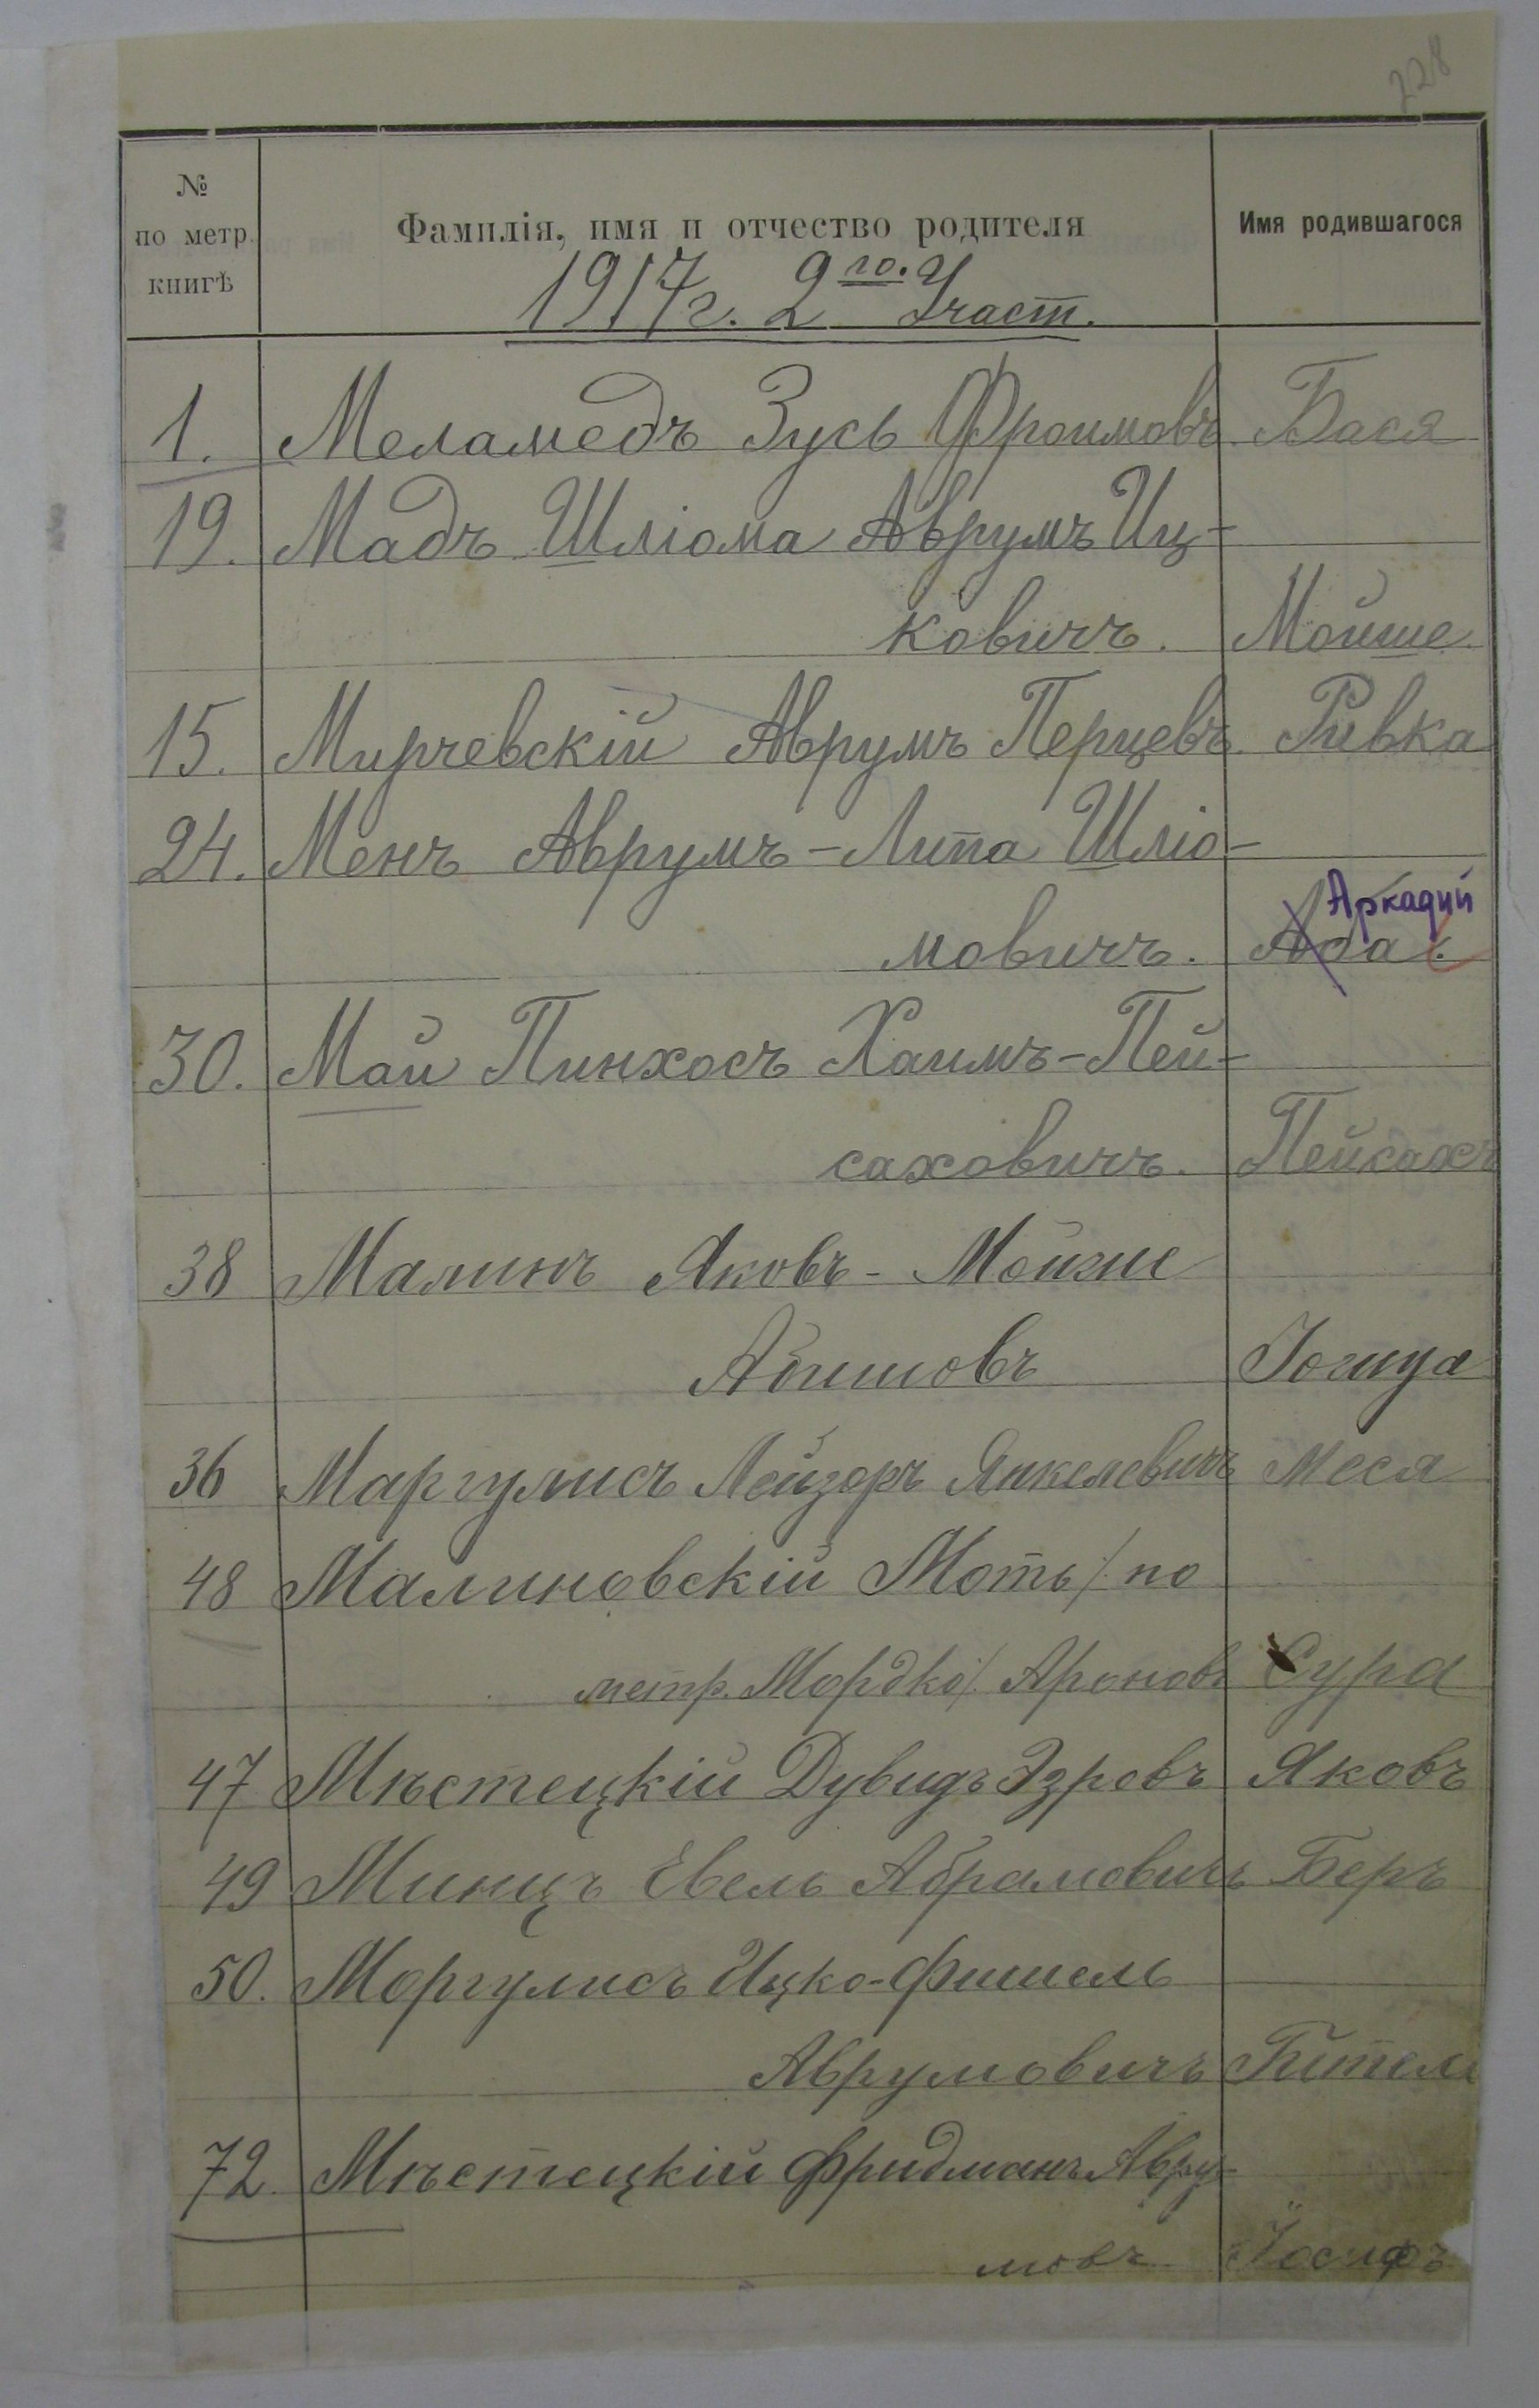 228
№ по метр. книгѣ
Фамилія, имя и отчество родителя
Имя родившагося
1917 г. 2го Участ.
1. Меламедъ Зусь Фроимовъ Бася
19. Мадъ Шліома Аврумъ Иц-
ковичъ. Мойше.
15. Мирчевскій Аврумъ Перцевъ Ривка
24. Менъ Аврумъ-Липа Шліо-
Аркадий
мовичъ. Аба.
30. Май Пинхосъ Хаимъ-Пей-
саховичъ. Пейсахъ
38 Малинъ Яковъ-Мойше
Абишовъ Іошуа
36 Маргулисъ Лейзоръ Янкелевичъ Меся
48 Малиновскій Моть /: по
метр. Мордко :/ Ароновъ Сура
47 Мѣстецкій Дувидъ Эзровъ Яковъ
49 Минцъ Евель Абрамовичъ Беръ
50. Моргулисъ Ицко-Фишель
Аврумовичъ Гитель
72. Мѣстецкій Фридманъ Авру-
мовъ Іосифъ